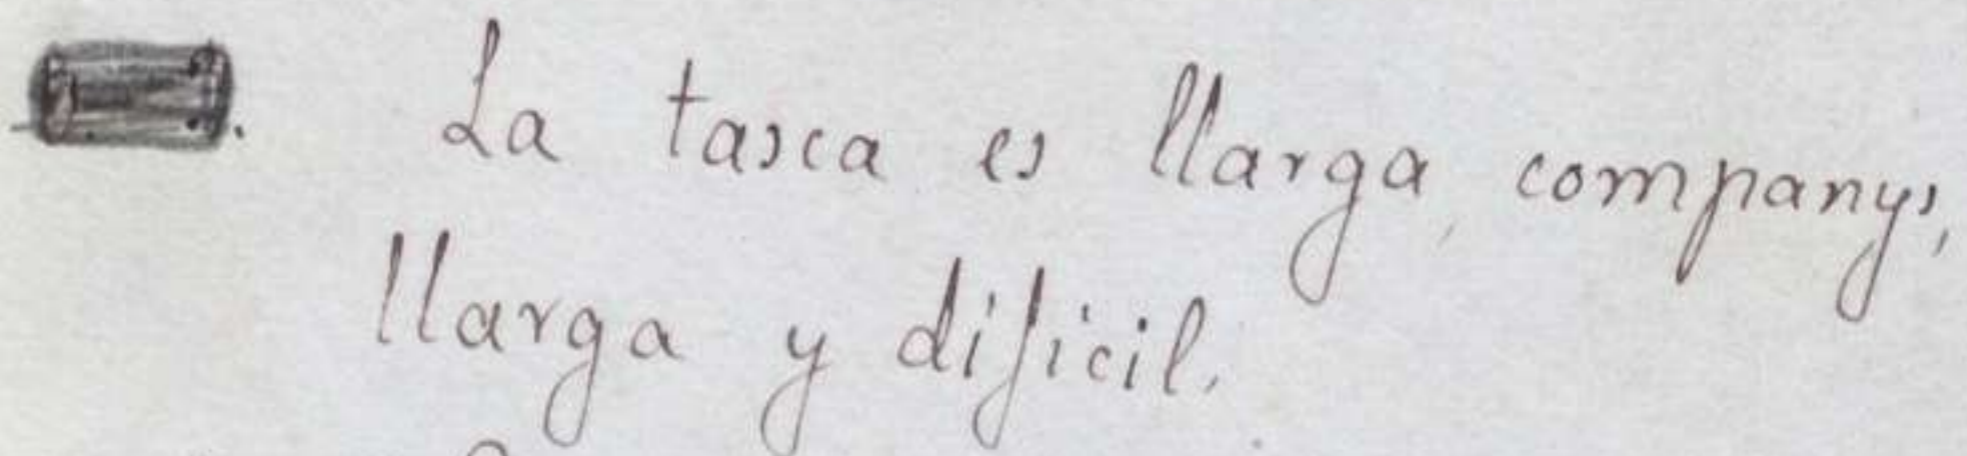 La tasca es llarga, companys,
llarga y dificil.